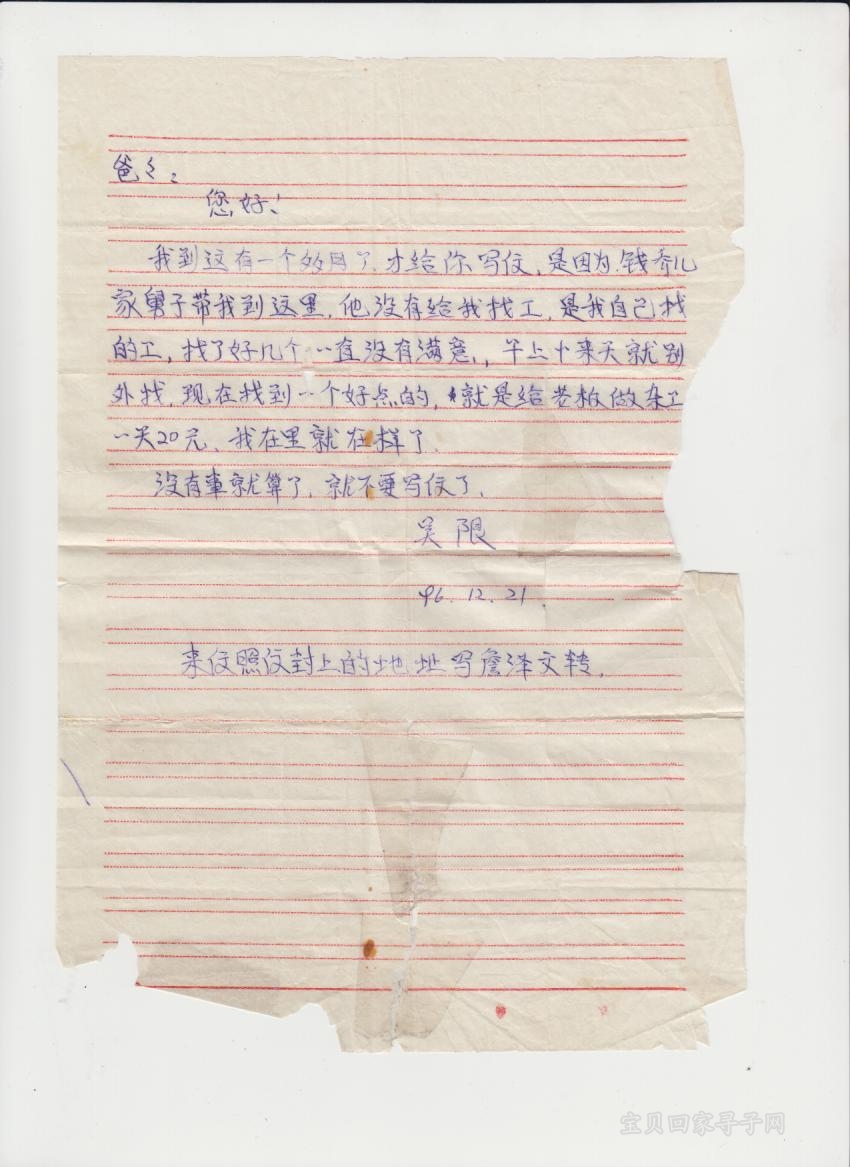 爸々:
您好!
我到这有一个多月了.才给你写信,是因为.钱乔儿
家舅子带我到这里,他没有给我找工,是我自己找
的工,找了好几个一直没有满意,,干上十来天就别
外找.现在找到一个好点的,就是给老板做杂工
一天20元、我在里就在样了.
没有事就算了.就不要写信了.
吴限
96.12.21.
来信照信封上的地址写詹泽文转.
宝贝回家寻子网